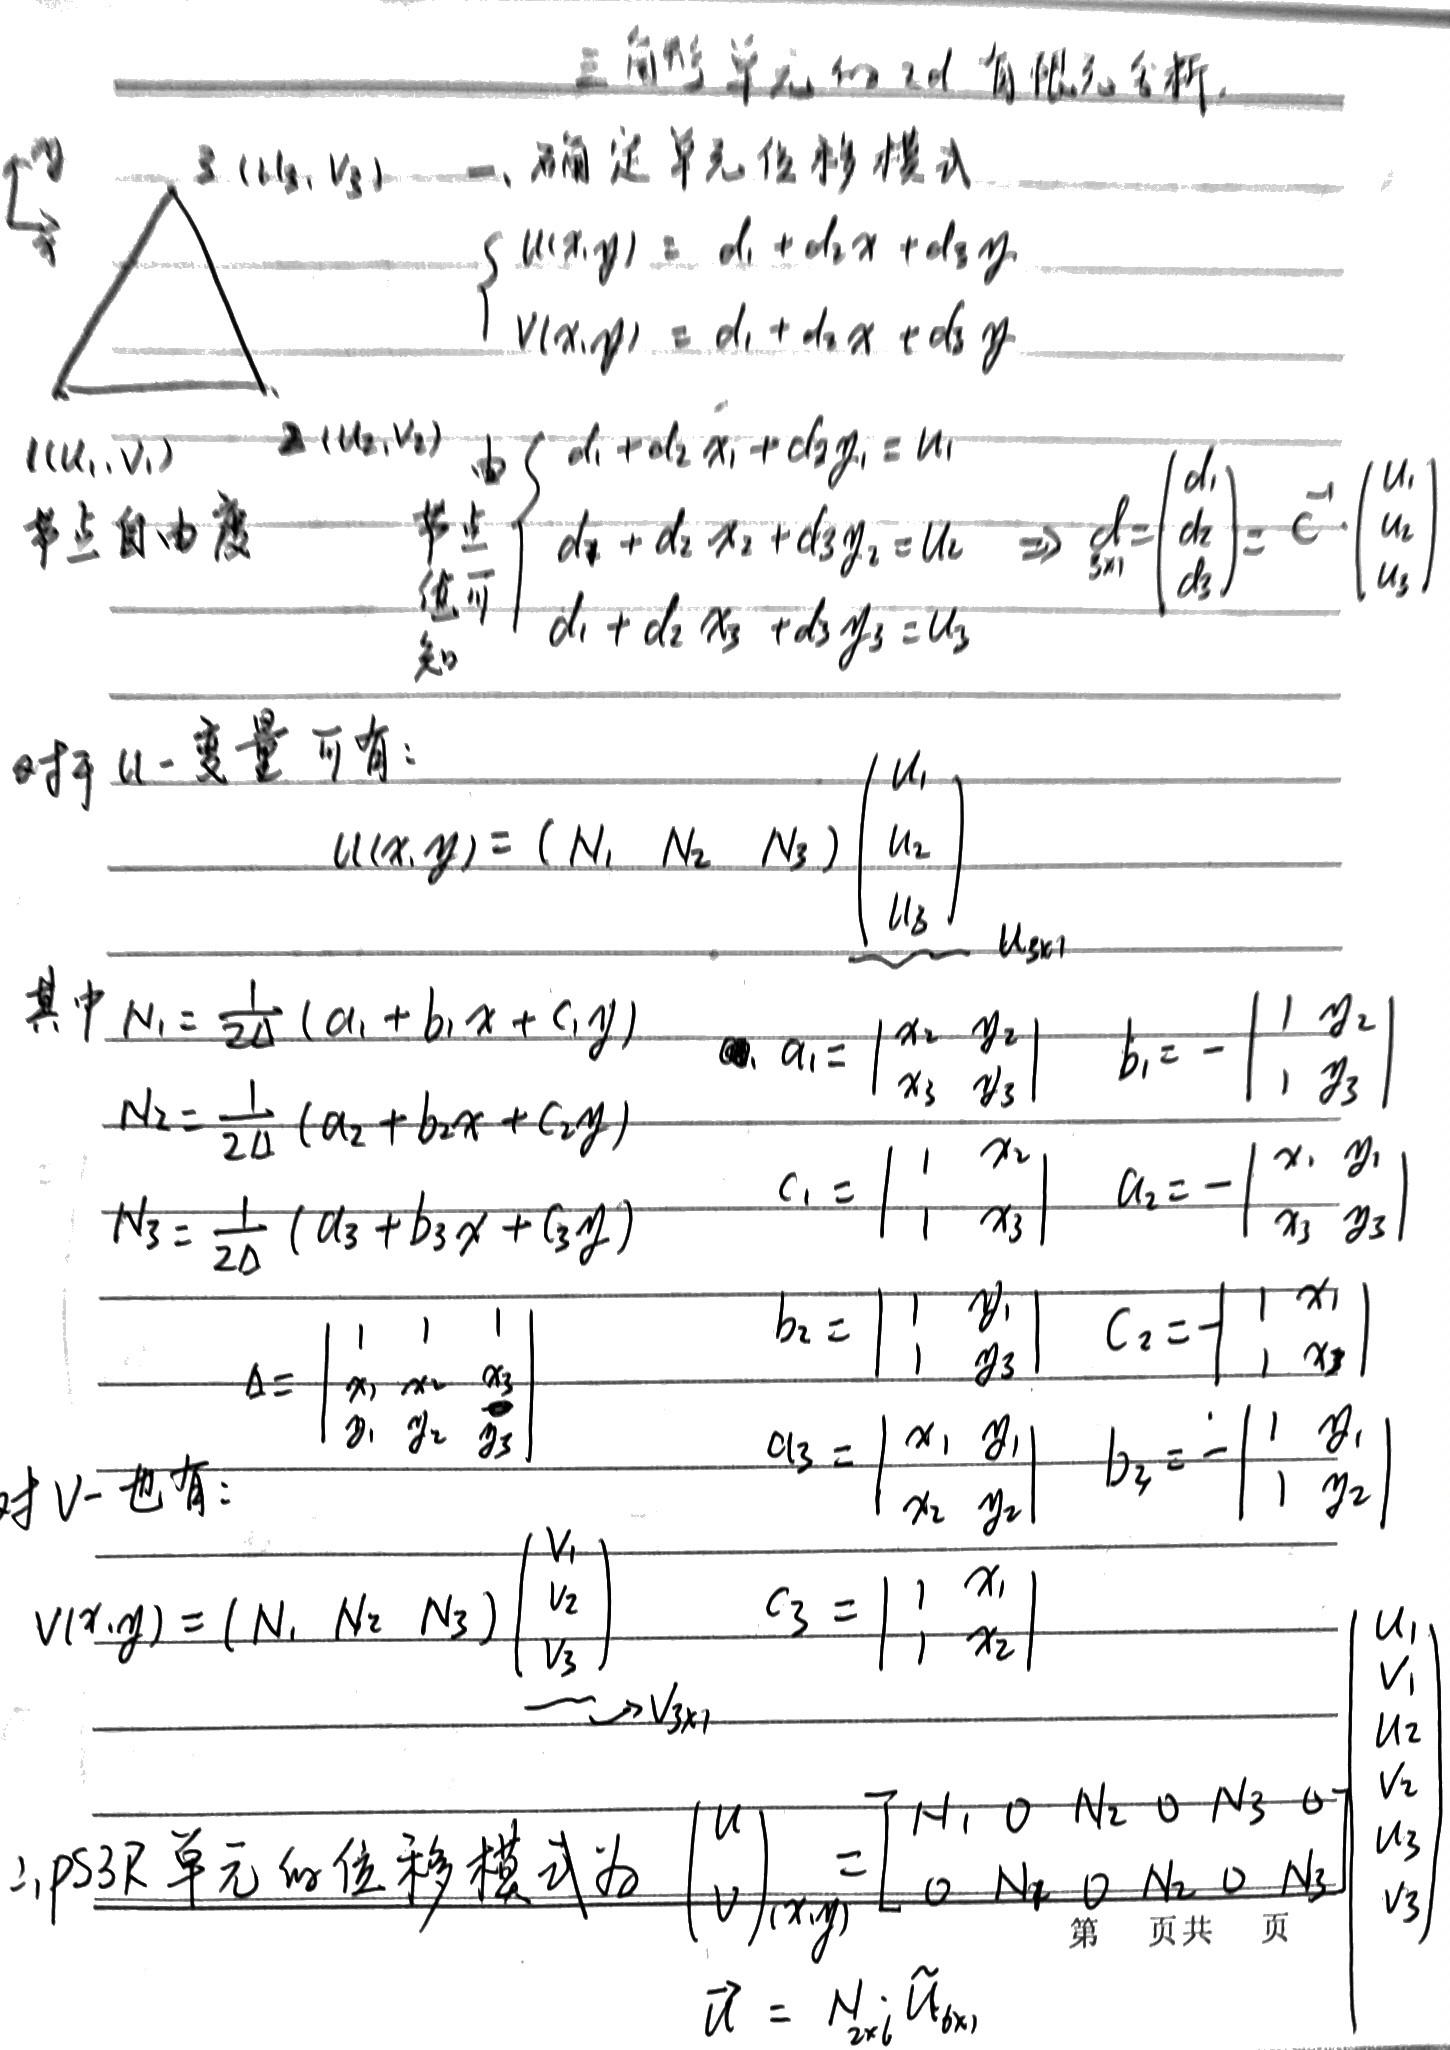 三角形单元的2d有限元分析.
y
x
3(u₃, v₃)
一、确定单元位移模式
{ u(x,y) = d₁ + d₂x + d₃y
v(x,y) = d₁ + d₂x + d₃y
1(u₁, v₁) 2(u₂, v₂)
节点自由度
由节点值可知 { d₁ + d₂x₁ + d₃y₁ = u₁
d₁ + d₂x₂ + d₃y₂ = u₂ ⇒ d₃ₓ₁ = (d₁ d₂ d₃) = C⁻¹ · (u₁ u₂ u₃)
d₁ + d₂x₃ + d₃y₃ = u₃
对于u-变量可有:
u(x,y) = (N₁ N₂ N₃) (u₁ u₂ u₃) u₃ₓ₁
其中 N₁ = 1/2Δ (a₁ + b₁x + c₁y)
N₂ = 1/2Δ (a₂ + b₂x + c₂y)
N₃ = 1/2Δ (a₃ + b₃x + c₃y)
Δ = |1 1 1; x₁ x₂ x₃; y₁ y₂ y₃|
a₁ = |x₂ y₂; x₃ y₃| b₁ = -|1 y₂; 1 y₃|
c₁ = |1 x₂; 1 x₃| a₂ = -|x₁ y₁; x₃ y₃|
b₂ = |1 y₁; 1 y₃| c₂ = -|1 x₁; 1 x₃|
a₃ = |x₁ y₁; x₂ y₂| b₃ = -|1 y₁; 1 y₂|
c₃ = |1 x₁; 1 x₂|
对v-也有:
v(x,y) = (N₁ N₂ N₃) (v₁ v₂ v₃) → v₃ₓ₁
∴ PS3R单元的位移模式为 (u v)(x,y) = [N₁ 0 N₂ 0 N₃ 0; 0 N₁ 0 N₂ 0 N₃] (u₁ v₁ u₂ v₂ u₃ v₃)
第 页共 页
u⃗ = N₂ₓ₆ · ũ₆ₓ₁